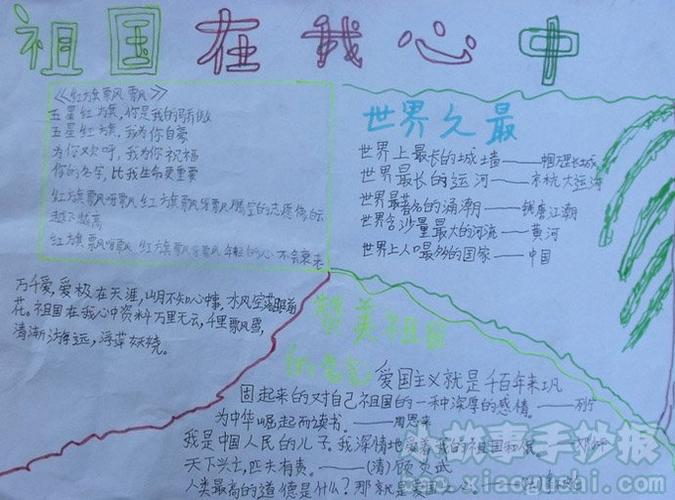 祖国在我心中
《红旗飘飘》
五星红旗,你是我的骄傲
五星红旗,我为你自豪
为你欢呼,我为你祝福
你的名字,比我生命更重要
红旗飘呀飘 红旗飘呀飘 腾空的志愿像云
越飞越高
红旗飘呀飘 红旗飘呀飘 年轻的心 不会衰老
万千爱,爱极在天涯,山月不知心事,水风空落眼前
花。祖国在我心中资料万里无云,千里飘雪,
清渐游年远,浮萍妖娆。
世界之最
世界上最长的城墙——万里长城
世界最长的运河——京杭大运河
世界最著名的涌潮——钱唐江潮
世界含沙量最大的河流——黄河
世界上人口最多的国家——中国
赞美祖国
的名言
爱国主义就是千百年来巩
固起来的对自己祖国的一种深厚的感情。——列宁
为中华崛起而读书。——周恩来
我是中国人民的儿子。我深情地爱着我的祖国和
天下兴亡,匹夫有责。——(清)顾炎武
人类最高的道德是什么?那就是爱国
小故事手抄报
cao.xiaogushi.com